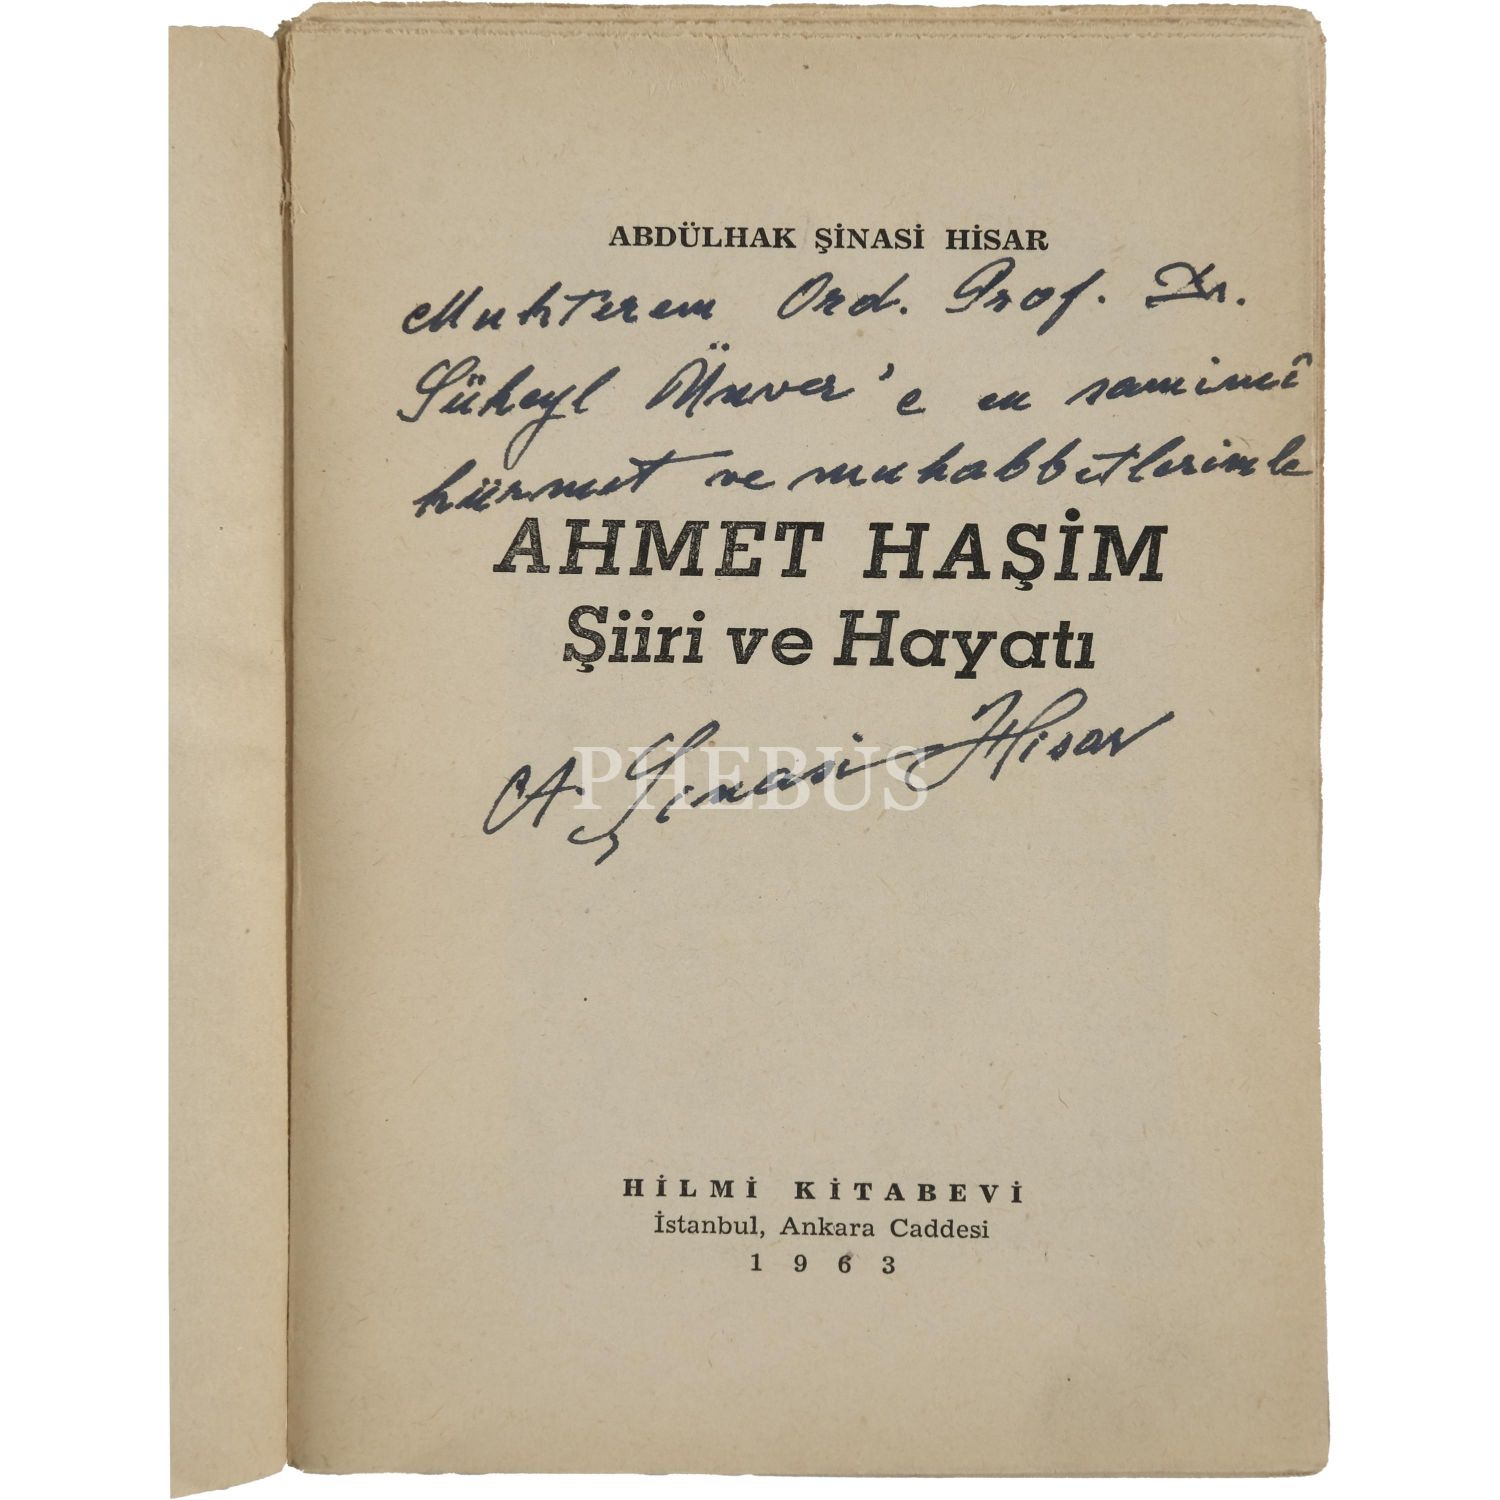 ABDÜLHAK ŞİNASİ HİSAR
Muhterem Ord. Prof. Dr.
Süheyl Ünver'e en samimî
hürmet ve muhabbetlerimle
AHMET HAŞİM
Şiiri ve Hayatı
A. Şinasi Hisar
PHEBUS
HİLMİ KİTABEVİ
İstanbul, Ankara Caddesi
1963